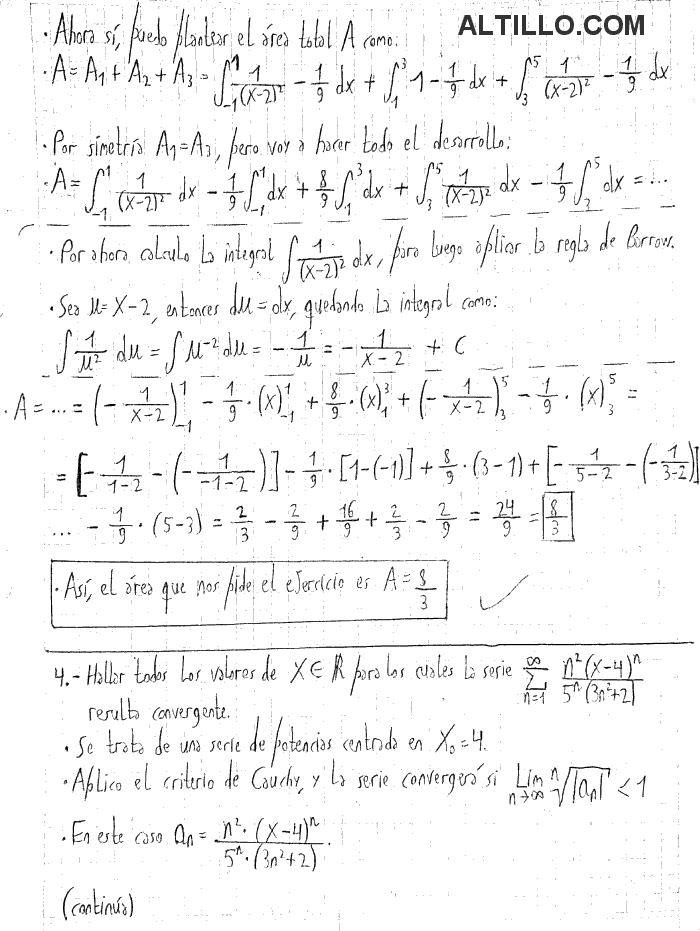 ALTILLO.COM
· Ahora sí, puedo plantear el área total A como:
· A = A₁ + A₂ + A₃ = ∫₋₁¹ 1/(x-2)² - 1/9 dx + ∫₁³ 1 - 1/9 dx + ∫₃⁵ 1/(x-2)² - 1/9 dx
· Por simetría A₁=A₃, pero voy a hacer todo el desarrollo:
· A = ∫₋₁¹ 1/(x-2)² dx - 1/9 ∫₋₁¹ dx + 8/9 ∫₁³ dx + ∫₃⁵ 1/(x-2)² dx - 1/9 ∫₃⁵ dx = ...
· Por ahora calculo la integral ∫ 1/(x-2)² dx, para luego aplicar la regla de Barrow.
· Sea u = x-2, entonces du = dx, quedando la integral como:
∫ 1/u² du = ∫ u⁻² du = - 1/u = - 1/(x-2) + C
· A = ... = (- 1/(x-2))₋₁¹ - 1/9 · (x)₋₁¹ + 8/9 · (x)₁³ + (- 1/(x-2))₃⁵ - 1/9 · (x)₃⁵ =
= [- 1/(1-2) - (- 1/(-1-2))] - 1/9 · [1-(-1)] + 8/9 · (3-1) + [- 1/(5-2) - (- 1/(3-2))]
... - 1/9 · (5-3) = 2/3 - 2/9 + 16/9 + 2/3 - 2/9 = 24/9 = 8/3
· Así, el área que nos pide el ejercicio es A = 8/3 ✓
4.- Hallar todos los valores de X ∈ R para los cuales la serie ∑ₙ₌₁^∞ n²(x-4)ⁿ/5ⁿ(3n²+2)
resulta convergente.
· Se trata de una serie de potencias centrada en X₀=4.
· Aplico el criterio de Cauchy, y la serie convergerá si Lim n→∞ ⁿ√|aₙ| < 1
· En este caso aₙ = n² · (x-4)ⁿ/5ⁿ · (3n²+2).
(continúa)